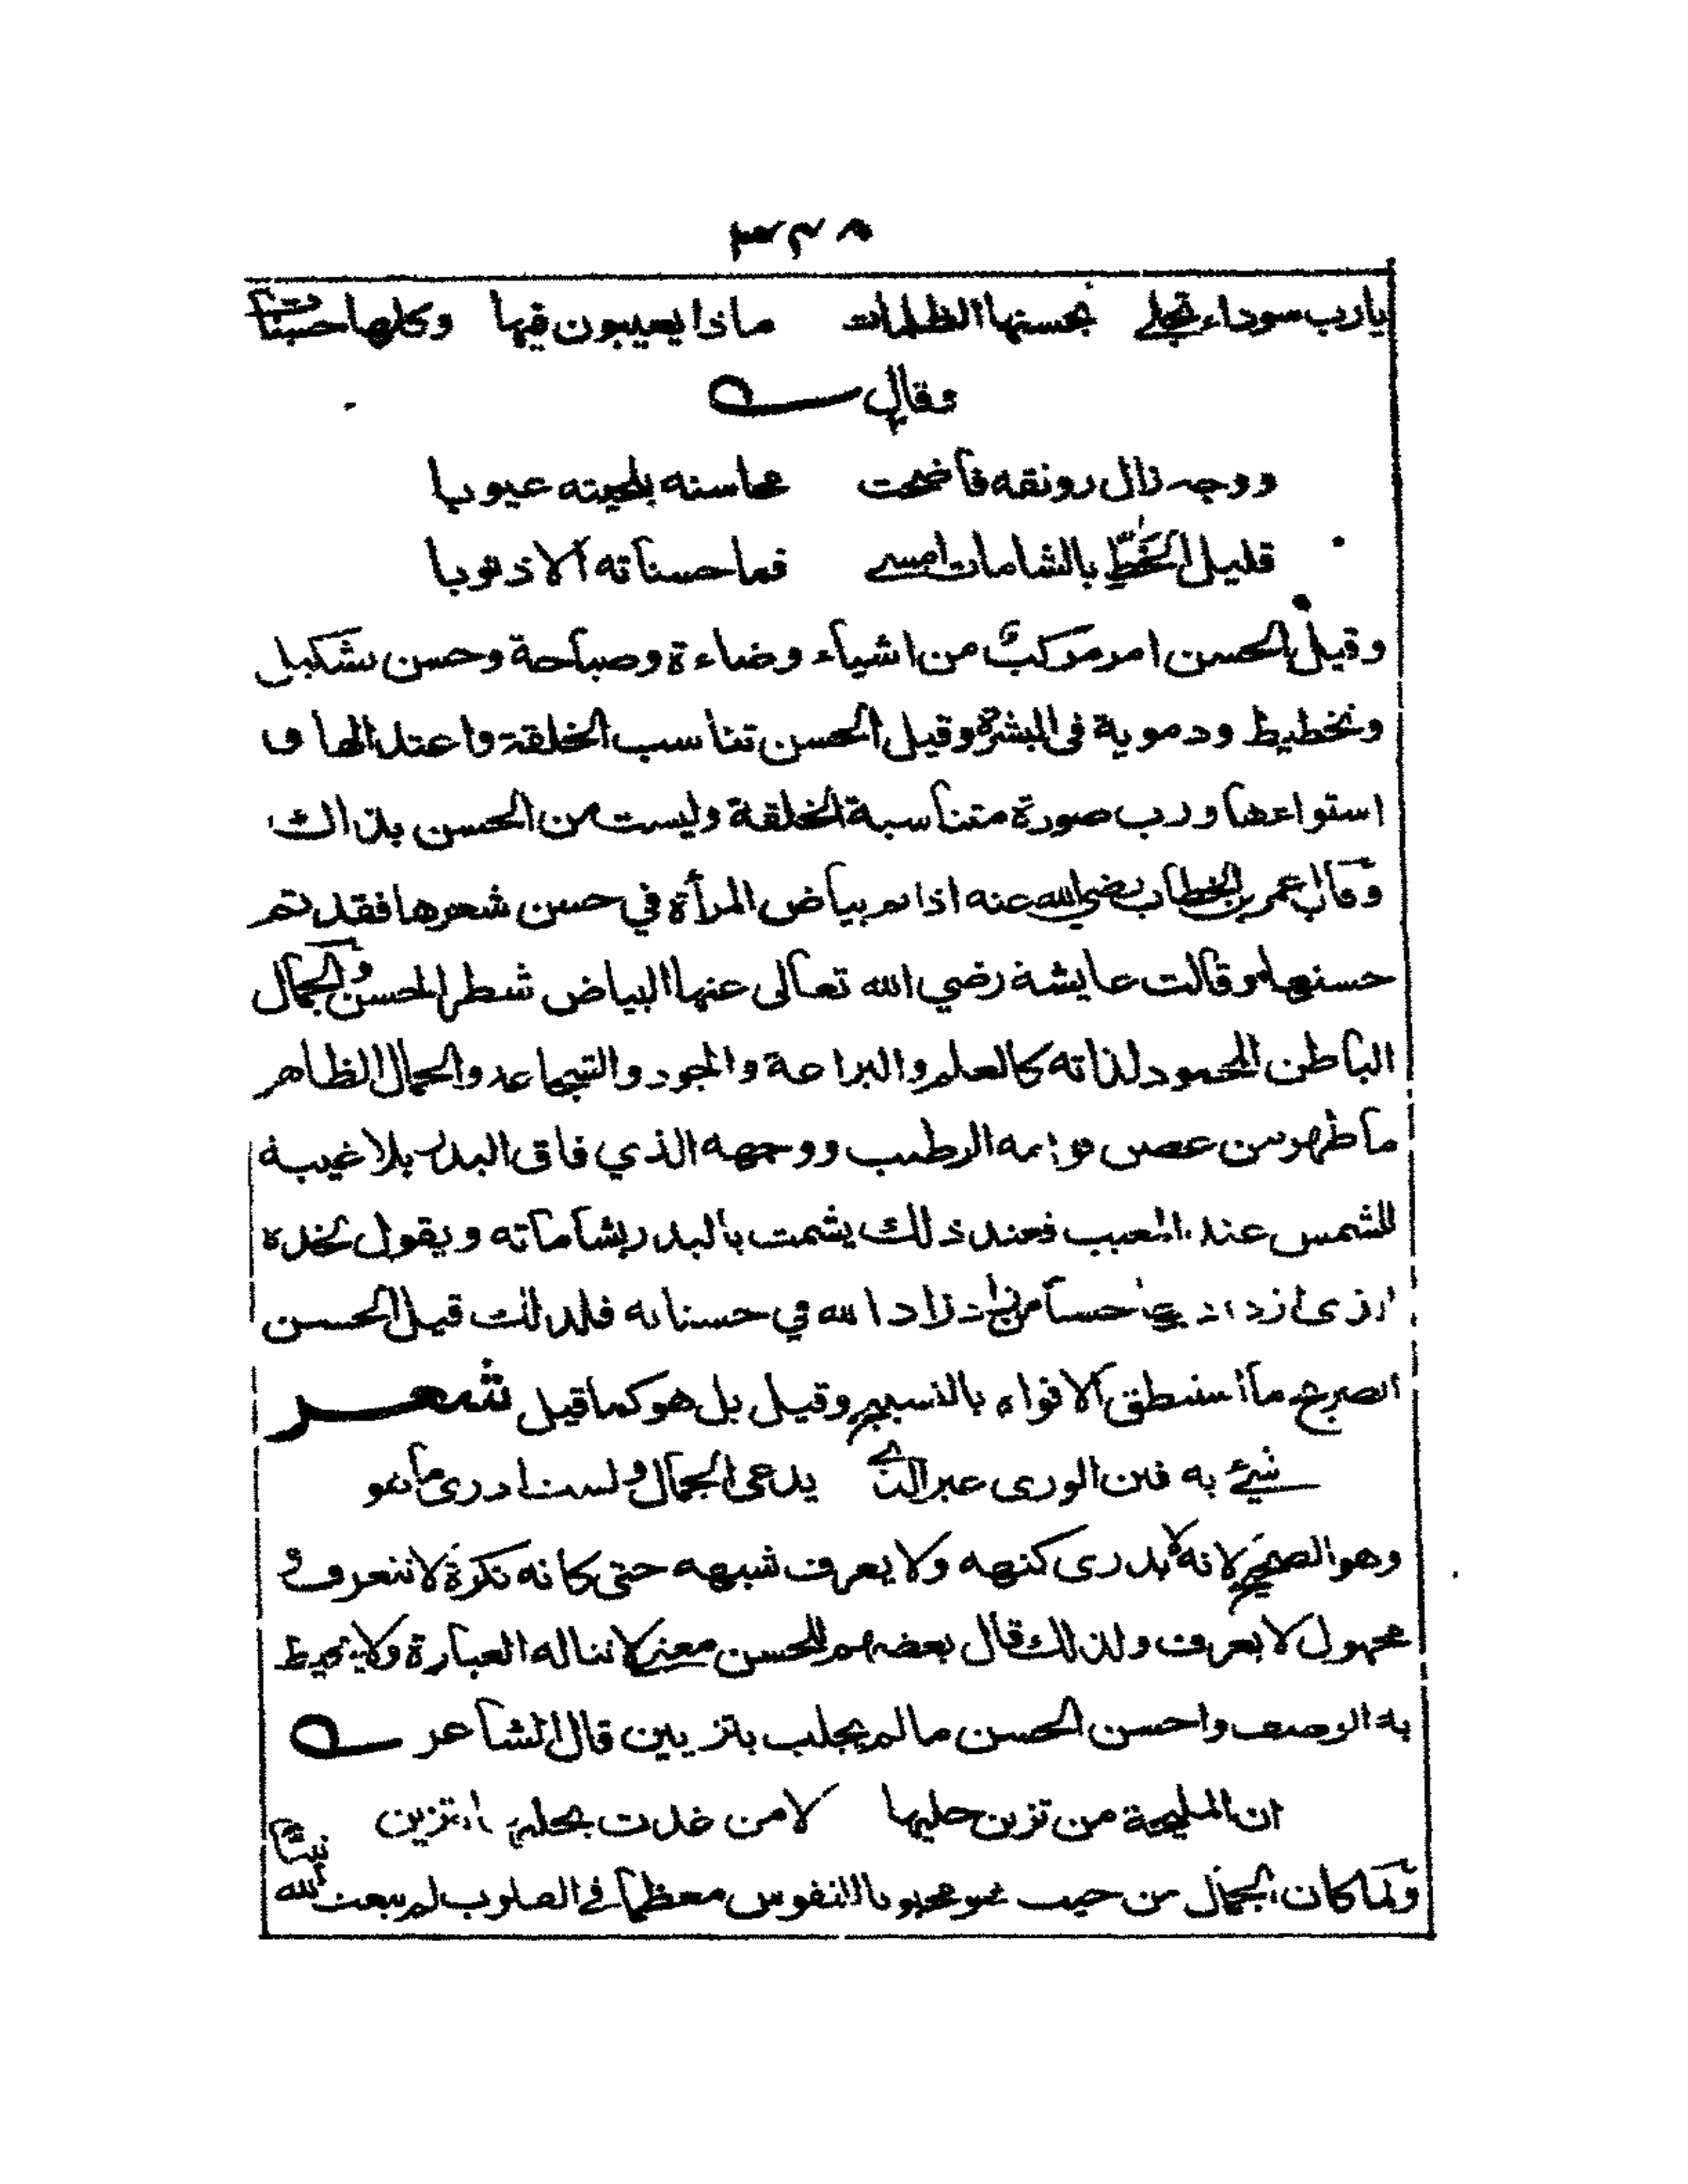 ٣٣٨
يارب سوداء تجلى بحسنها الظلمات ماذا يعيبون فيها وكلها حسنات
وقال
ووجه زال رونقه فأضحت محاسنه بلحيته عيوبا
قليل الحظ بالشامات امسى فما حسناته الا ذنوبا
وقيل الحسن امر مركب من اشياء وضاءة وصباحة وحسن تشكيل
وتخطيط ودموية في البشرة وقيل الحسن تناسب الخلقة واعتدالها و
استواءها ورب صورة متناسبة الخلقة وليست من الحسن بذاك
وقال عمر بن الخطاب رضي الله عنه اذا تم بياض المرأة في حسن شعرها فقد تم
حسنها وقالت عايشة رضي الله تعالى عنها البياض شطر الحسن والجمال
الباطن المحمود لذاته كالعلم والبراعة والجود والشجاعة والجمال الظاهر
ما ظهر من غصن قوامه الرطيب ووجهه الذي فاق البدر بلا غيبة
للشمس عند المغيب فعند ذلك يشمت بالبدر بشاماته ويقول لخده
حسنا زاد الله في حسناته فلذلك قيل الحسن
الصريح ما استنطق الافواه بالتسبيح وقيل بل هو كما قيل شعر
شيئ به فتن الورى غير الذي يدعى الجمال ولست ادرى ما هو
وهو الصحيح لانه لا يدرى كنهه ولا يعرف شبهه حتى كانه نكرة لا تتعرف و
مجهول لا يعرف ولذلك قال بعضهم للحسن معنى لا تناله العبارة ولا يحيط
به الوصف واحسن الحسن ما لم يجلب بتزيين قال الشاعر
ان المليحة من تزين حليها لا من غدت بحليها تتزين
ولما كان الجمال من حيث هو محبوبا للنفوس معظما في القلوب لم يبعث الله نبيا